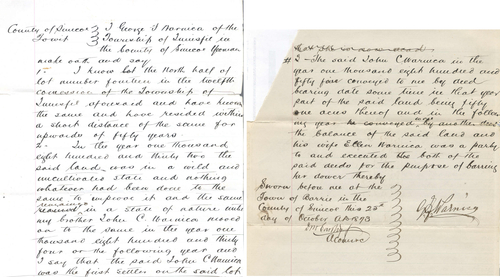 County of Simcoe I George J Warnica of the
Township of Innisfil in
the County of Simcoe Yeoman
make oath and say
1. I know Lot the North half of
lot number fourteen in the twelfth
concession of the Township of
Innisfil aforesaid and have known
the same and have resided within
a short distance of the same for
upwards of fifty years
2. In the year one thousand
eight hundred and thirty two the
said land was in a wild and
uncultivated state and nothing
whatever had been done to the
same to improve it and the same
remained in a state of nature until
my brother John C. Warnica moved
on to the same in the year one
thousand eight hundred and thirty
four or the following year and
I say that the said John C Warnica
was the first settler on the said lot
3 - The said John C Warnica in the
year one thousand eight hundred and
fifty four conveyed to me by deed
bearing date some time in that year
part of the said land being fifty
one acres thereof and in the following
year he conveyed by another deed
the balance of the said land and
his wife Ellen Warnica was a party
to and executed both of the
said deeds for the purpose of barring
her dower thereby
Sworn before me at the
Town of Barrie in the
County of Simcoe this 22nd
day of October